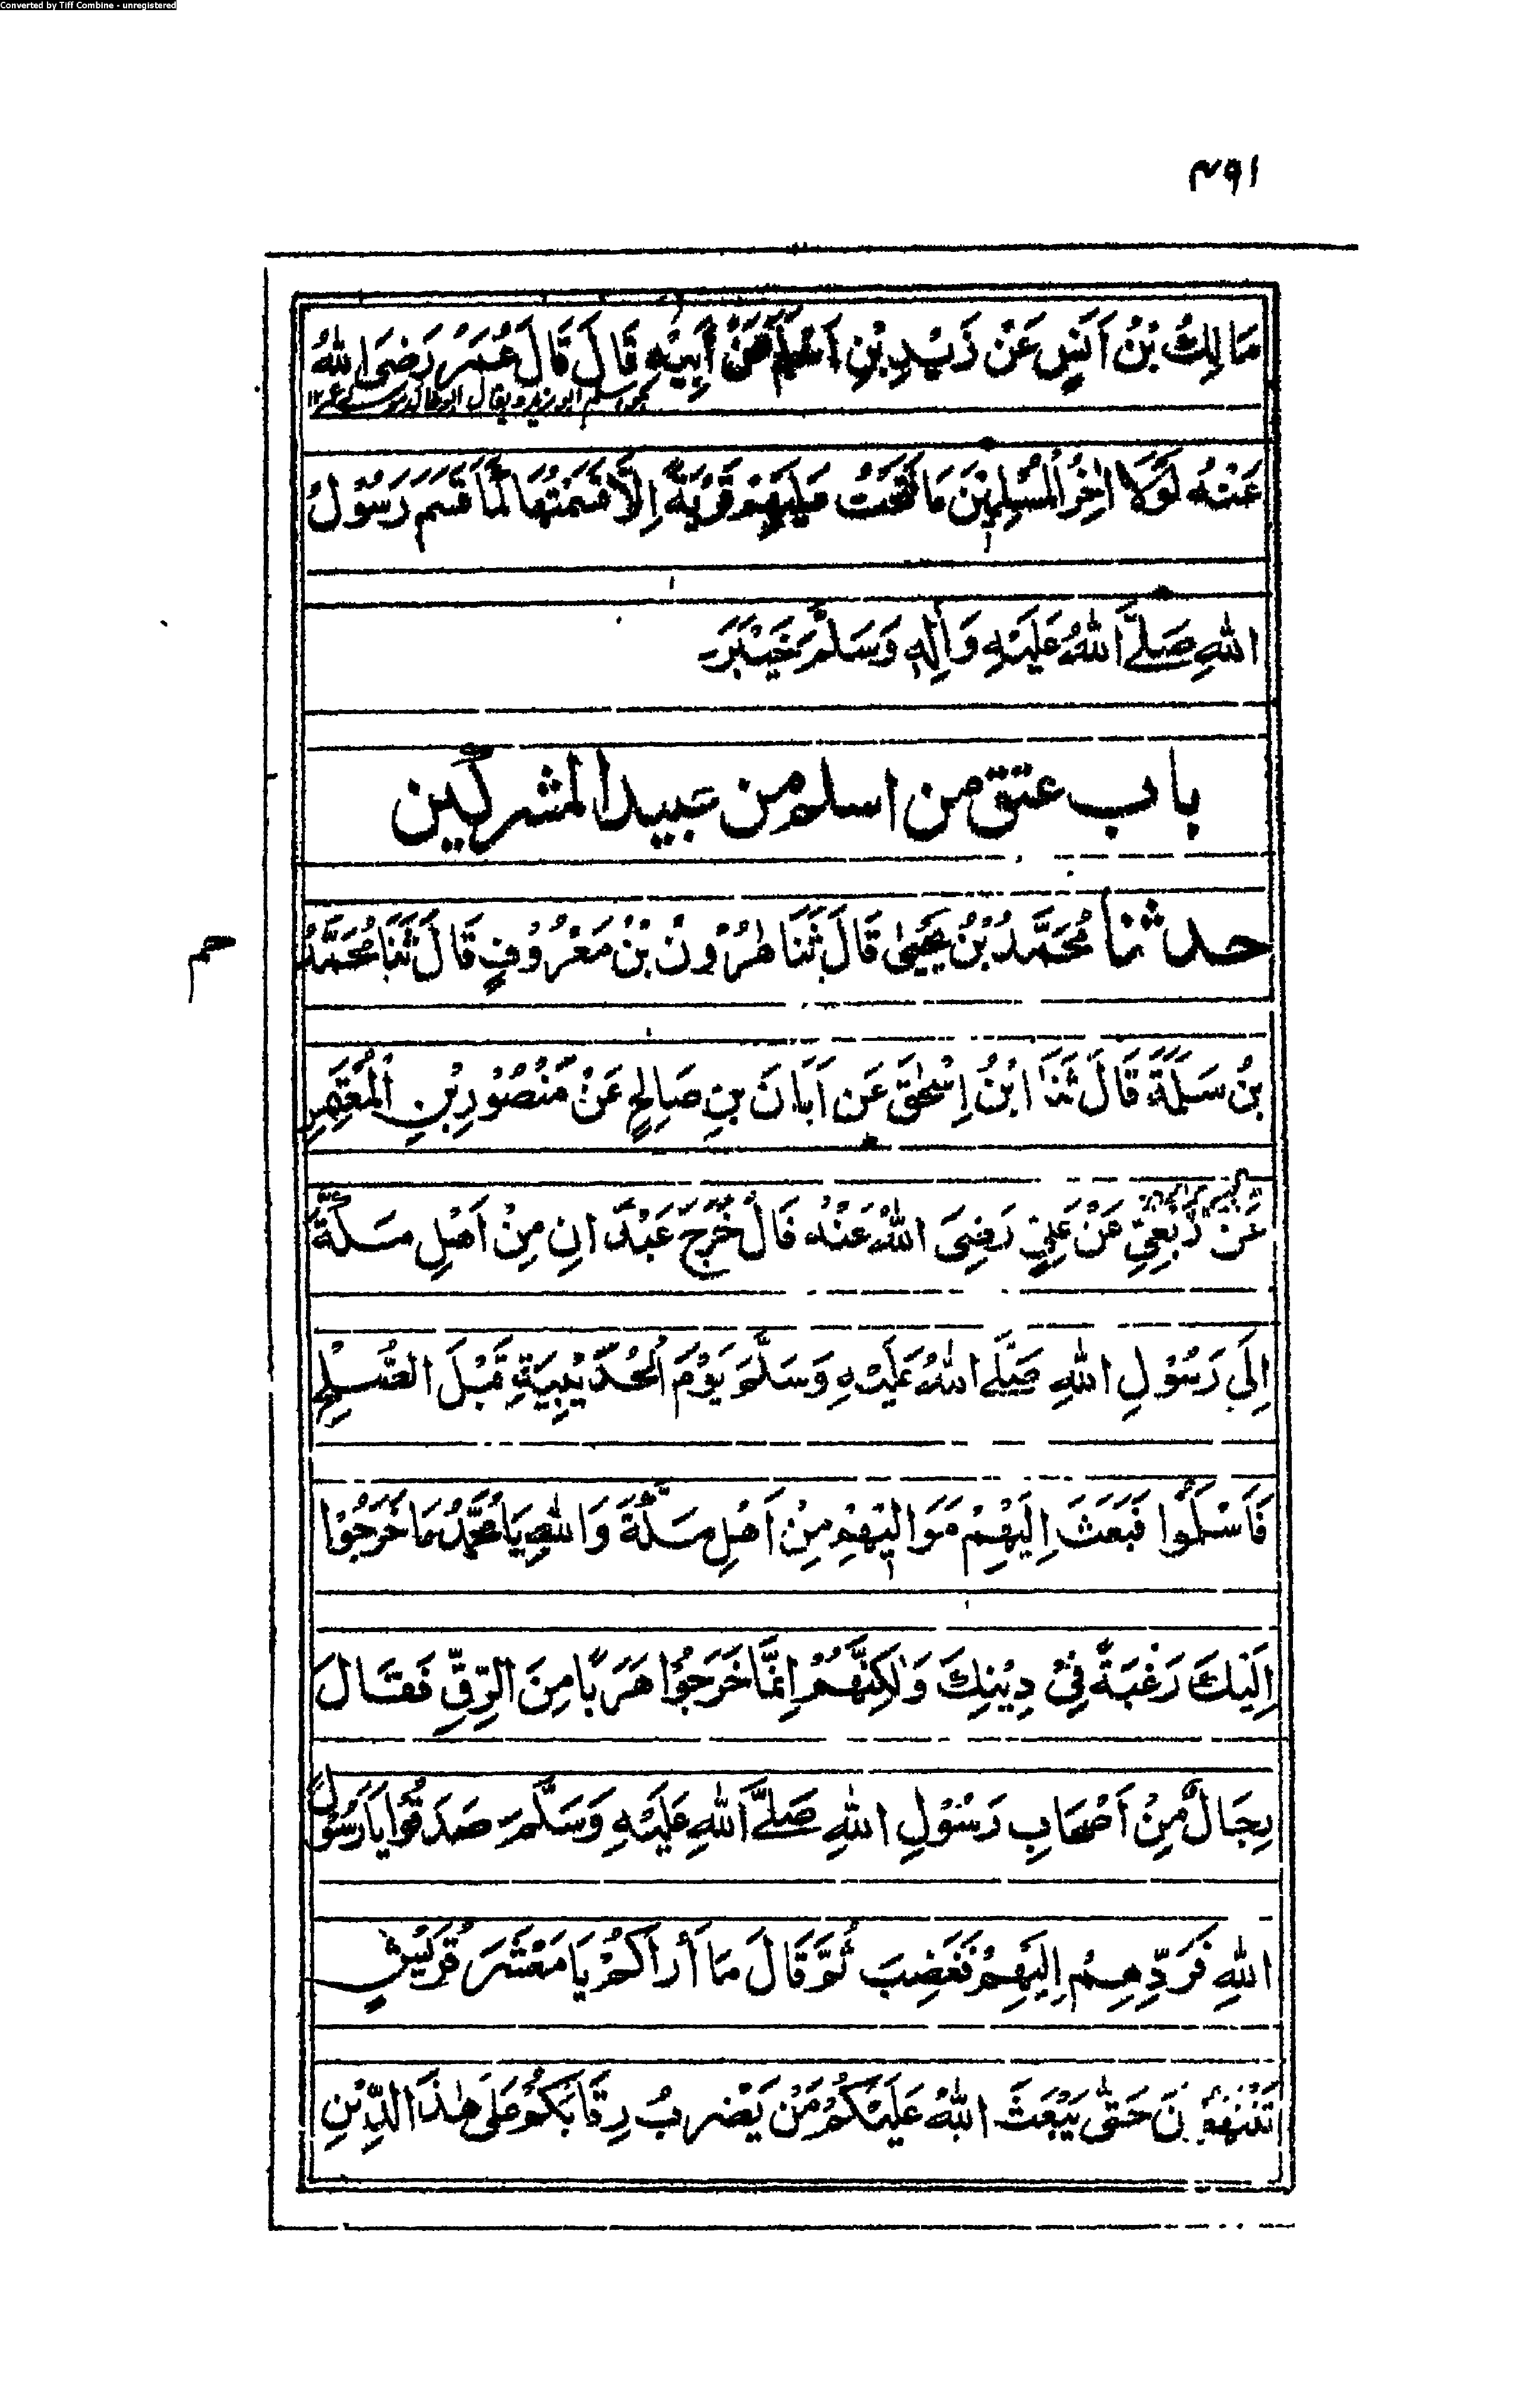 Converted by Tiff Combine - unregistered
۴۹۱
مَالِكُ بْنُ اَنَسٍ عَنْ زَيْدِ بْنِ اَسْلَمَ عَنْ اَبِيْهِ قَالَ قَالَ عُمَرُ رَضِيَ اللهُ
عَنْهُ لَوْلَا اٰخِرُ الْمُسْلِمِيْنَ مَا فُتِحَتْ عَلَيْهِمْ قَرْيَةٌ اِلَّا قَسَمْتُهَا لَمَا قَسَمَ رَسُوْلُ
اللهِ صَلَّى اللهُ عَلَيْهِ وَاٰلِهٖ وَسَلَّمَ خَيْبَرَ
باب عتق من اسلم من عبيد المشركين
حدثنا مُحَمَّدُ بْنُ يَحْيٰى قَالَ ثَنَا هٰرُوْنُ بْنُ مَعْرُوْفٍ قَالَ ثَنَا مُحَمَّدُ
بْنُ سَلَمَةَ قَالَ ثَنَا ابْنُ اِسْحٰقَ عَنْ اَبَانَ بْنِ صَالِحٍ عَنْ مَنْصُوْرِ بْنِ الْمُعْتَمِرِ
عَنْ رِبْعِيٍّ عَنْ عَلِيٍّ رَضِيَ اللهُ عَنْهُ قَالَ خَرَجَ عَبْدَانِ مِنْ اَهْلِ مَكَّةَ
اِلَى رَسُوْلِ اللهِ صَلَّى اللهُ عَلَيْهِ وَسَلَّمَ يَوْمَ الْحُدَيْبِيَةِ قَبْلَ الصُّلْحِ
فَاَسْلَمُوْا فَبَعَثَ اِلَيْهِمْ مَوَالِيْهِمْ مِنْ اَهْلِ مَكَّةَ وَاللهِ يَا مُحَمَّدُ مَا خَرَجُوْا
اِلَيْكَ رَغْبَةً فِيْ دِيْنِكَ وَلٰكِنَّهُمْ اِنَّمَا خَرَجُوْا هَرَبًا مِنَ الرِّقِّ فَقَالَ
رِجَالٌ مِنْ اَصْحَابِ رَسُوْلِ اللهِ صَلَّى اللهِ عَلَيْهِ وَسَلَّمَ صَدَقُوْا يَا رَسُوْلَ
اللهِ فَرَدِّهِمْ اِلَيْهِمْ فَغَضِبَ ثُمَّ قَالَ مَا أُرَاكُمْ يَا مَعْشَرَ قُرَيْشٍ
تَنْتَهُوْنَ حَتّٰى يَبْعَثَ اللهُ عَلَيْكُمْ مَنْ يَضْرِبُ رِقَابَكُمْ عَلَى هٰذَا الدِّيْنِ